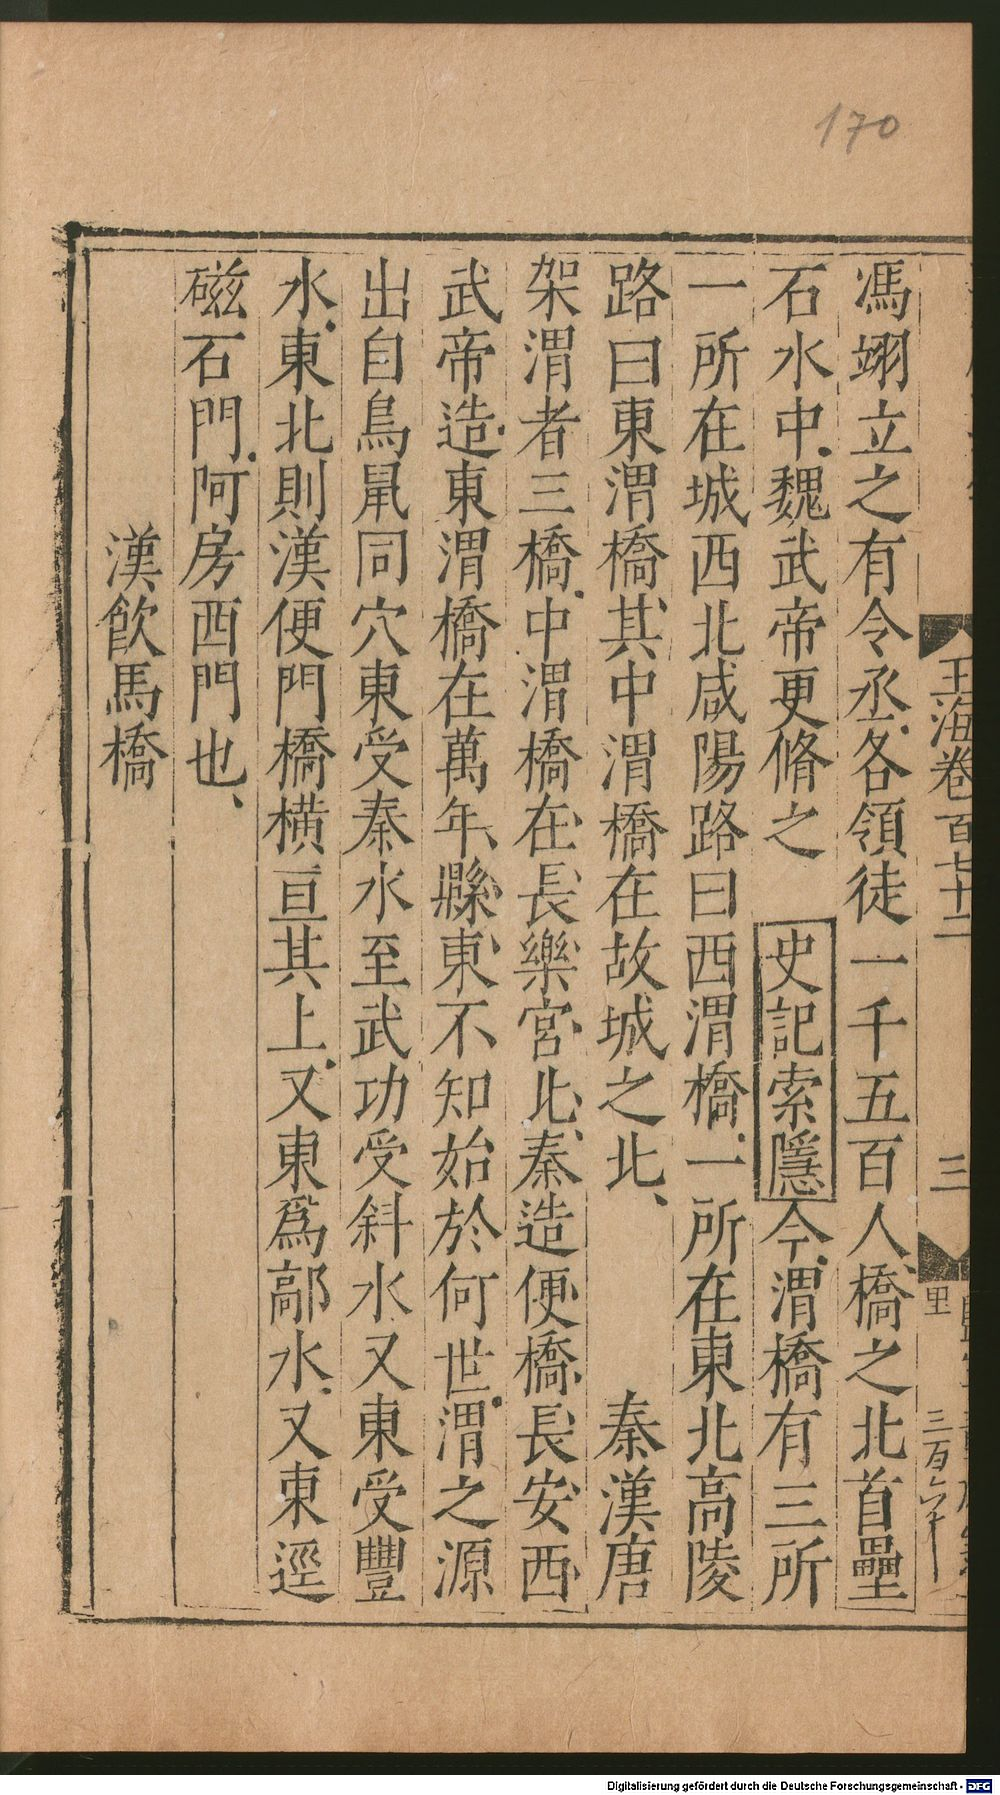 170
玉海卷百七十二
三
里
三百六十
馮翊立之有令丞各領徒一千五百人橋之北首壘
石水中魏武帝更脩之 史記索隱今渭橋有三所
一所在城西北咸陽路曰西渭橋一所在東北高陵
路曰東渭橋其中渭橋在故城之北 秦漢唐
架渭者三橋中渭橋在長樂宮北秦造便橋長安西
武帝造東渭橋在萬年縣東不知始於何世渭之源
出自鳥鼠同穴東受秦水至武功受斜水又東受豐
水東北則漢便門橋橫亘其上又東爲鄗水又東逕
磁石門阿房西門也
漢飲馬橋
Digitalisierung gefördert durch die Deutsche Forschungsgemeinschaft - DFG